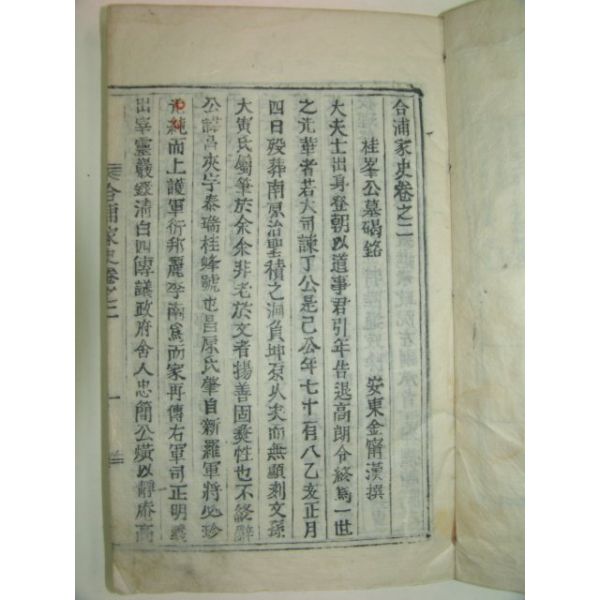 合浦家史卷之二
桂峯公墓碣銘
安東金甯漢撰
大夫士出身登朝以道事君引年告退高朗令終爲一世
之光華者若大司諫丁公是已公年七十有八乙亥正月
四日歿葬南原治聖積之洞負坤原久矣而無顯刻文孫
大寅氏屬筆於余余非老於文者揚善固彛性也不終辭
公諱昌夾字泰瑞桂蜂號也昌原氏肇自新羅軍將必珍
光純而上護軍衍邦麗李南爲而家再傳右軍司正明義
出宰靈巖錄淸白四傳議政府舍人忠簡公熿以靜庵高
合浦家史卷之二
一